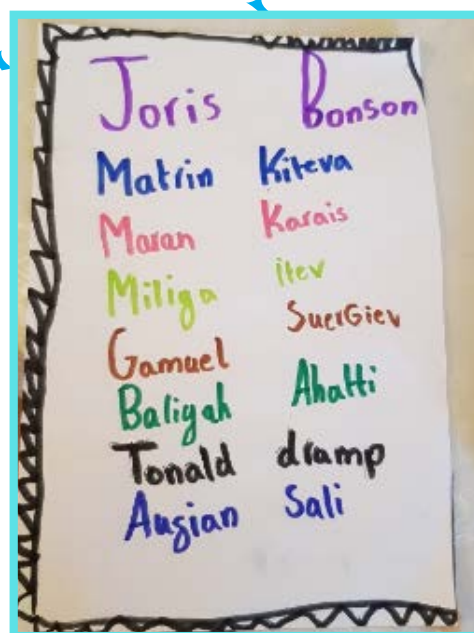 Joris Bonson
Matrin Kiteva
Maran Karais
Miliga itev
Gamuel SuerGiev
Baliyah Ahatti
Tonald dramp
Augian Sali